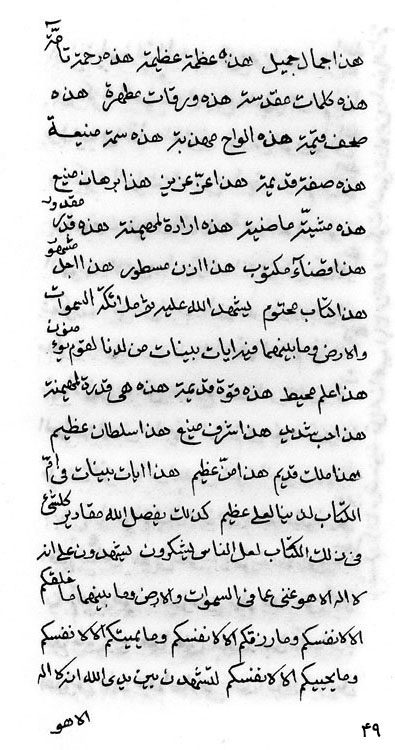 هذا جمال جميل هذه عظمة عظيمة هذه رحمة تامّة
هذه كلمات مقدسة هذه ورقات مطهرة هذه
صحف قيمة هذه الواح مهذبة هذه سمة منيعة
هذه صفة قديمة هذا عزّ عزيز هذا برهان منيع
هذه مشيّة ماضية هذه ارادة مهيمنة هذه قدر مقدور
هذا قضآء مكتوب هذا اذن مسطور هذا اجل مشهود
هذا كتاب مختوم يشهد الله عليه ثم ملائكة السموات
والارض وما بينهما فيه ايات بينات من لدنا لقوم يؤمنون
هذا علم محيط هذه قوة قديمة هذه هى قدرة مهيمنة
هذا حب شديد هذا شرف منيع هذا سلطان عظيم
هذا ملك قديم هذا منّ عظيم هذا ايات بينات فى امّ
الكتاب لدينا لعلى عظيم كذلك يفصل الله مقادير كلشئ
فى ذلك الكتاب لعل الناس ليشكرون ليشهدون على انه
لا اله الا هو غنى عما فى السموات والارض وما بينهما ما خلقكم
الا لانفسكم وما رزقكم الا لانفسكم وما يميتكم الا لانفسكم
وما يحييكم الا لانفسكم لتشهدن بين يدى الله انه لا اله
الا هو
۴۹